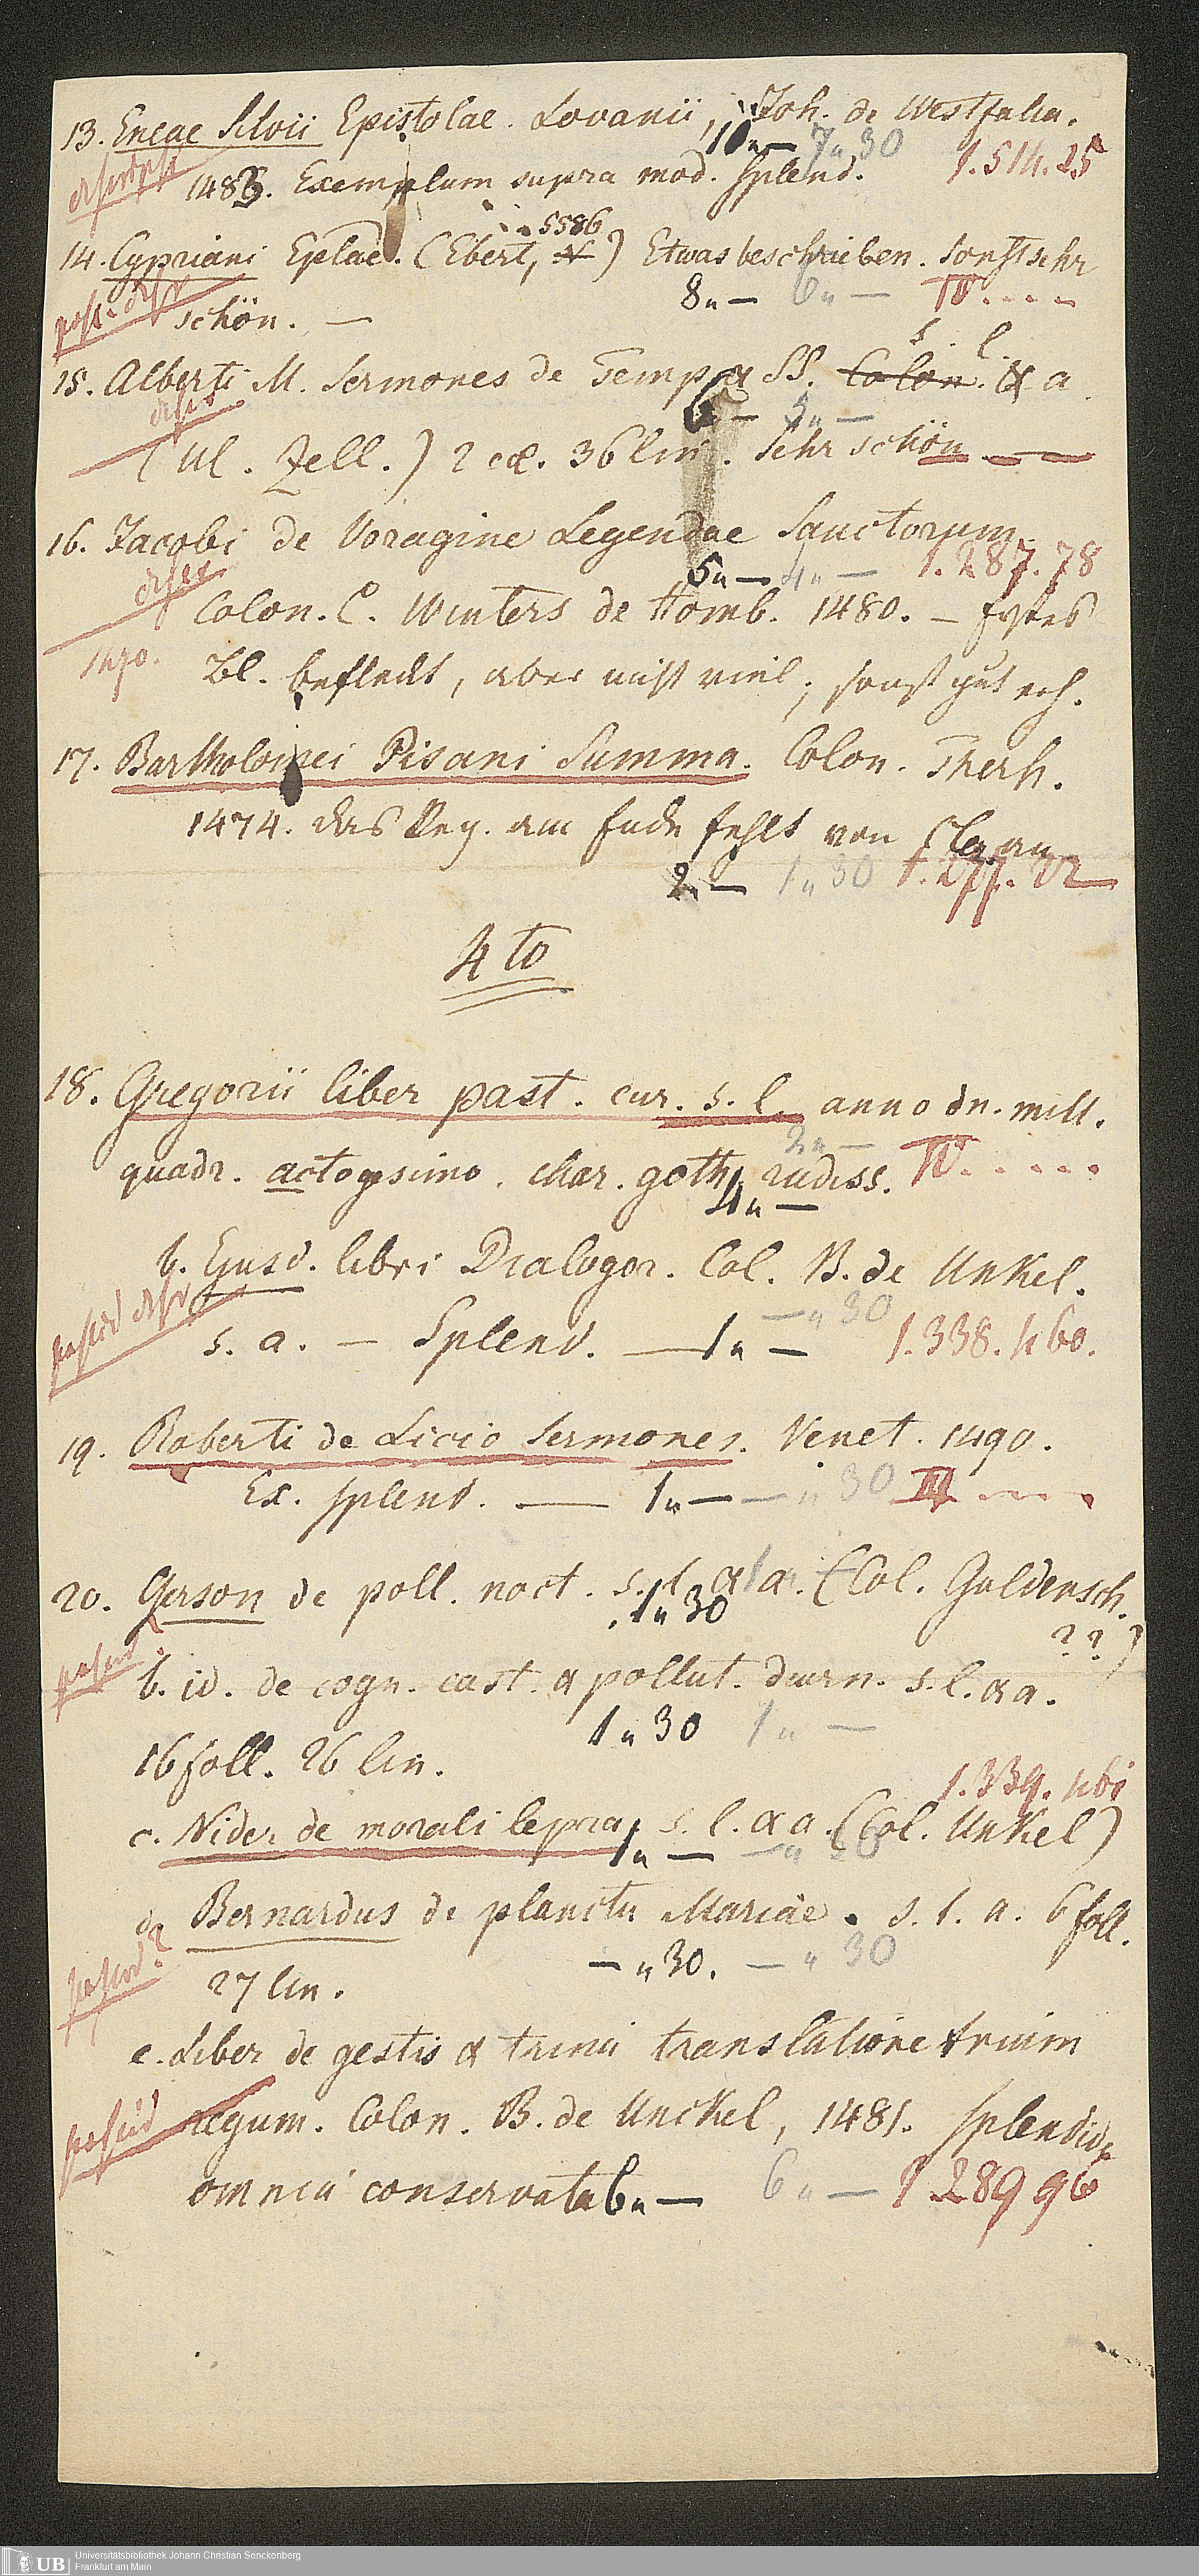 13. Eneae Silvii Epistolae. Lovanii, Joh. de Westfalia.
10„— 7„30
1483. Exemplum supra mod. splend. 1.514.25
5586
14. Cypriani Eplae. (Ebert, ) Etwas beschrieben. Sonst sehr
8„— 6„— IV. . . .
schön. —
s. l.
15. Alberti M. Sermones de Temp & SS. Colon. & a
6„— 5„—
(Ul. Zell.) 2 col. 36 lin. Sehr schön. —
16. Jacobi de Voragine Legendae Sanctorum.
5„— 4„— 1.287.78
Colon. C. Winters de Homb. 1480. — erstes
1470.
Bl. befleckt, aber nicht viel; sonst gut erh.
17. Bartholomei Pisani Summa. Colon. Therh.
1474. das Reg. am Ende fehlt von an
2„— 1„30 1.277.
4to
18. Gregorii liber past. cur. s. l. anno dn. mill.
2„—
quadr. actogesimo. char. goth. rudiss. IV. . . . .
4„—
b. Ejusd. libri Dialogor. Col. B. de Unkel.
—„30
s. a. — Splend. — 1„— 1.338.460.
19. Roberti de Licio Sermones. Venet. 1490.
Ex. splend. — 1„— —„30 IV . . . .
20. Gerson de poll. noct. s. l. & a. (Col. Guldensch.
1„30
? ?)
b. id. de cogn. cast. & pollut. diurn. s. l. & a.
1„30 1„—
16 foll. 26 lin.
1.339.461
c. Nider de morali lepra, s. l. & a. (Col. Unkel)
1„— —„30
d. Bernardus de planctu Mariae. s. l. a. 6 foll.
—„30. —„30
27 lin.
e. Liber de gestis & trina translatione trium
regum. Colon. B. de Unckel, 1481. Splendide
omnia conservata 6„— 6„— 1.289 96
UB
Universitätsbibliothek Johann Christian Senckenberg
Frankfurt am Main